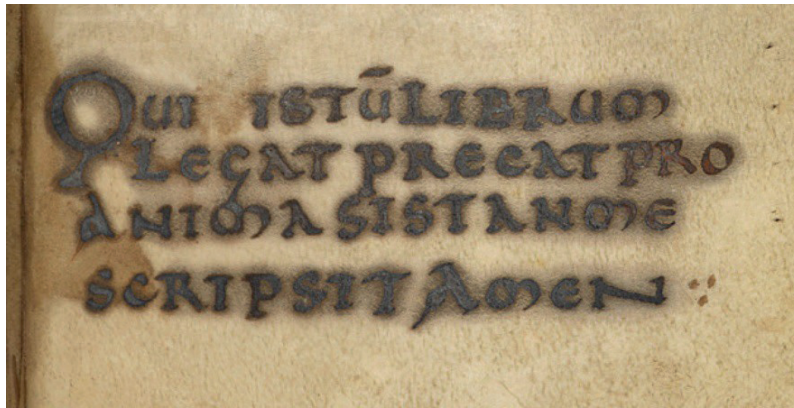 QUI ISTŪLIBRUM
LEGAT PRECAT PRO
ANIMA SISTANME
SCRIPSIT AMEN